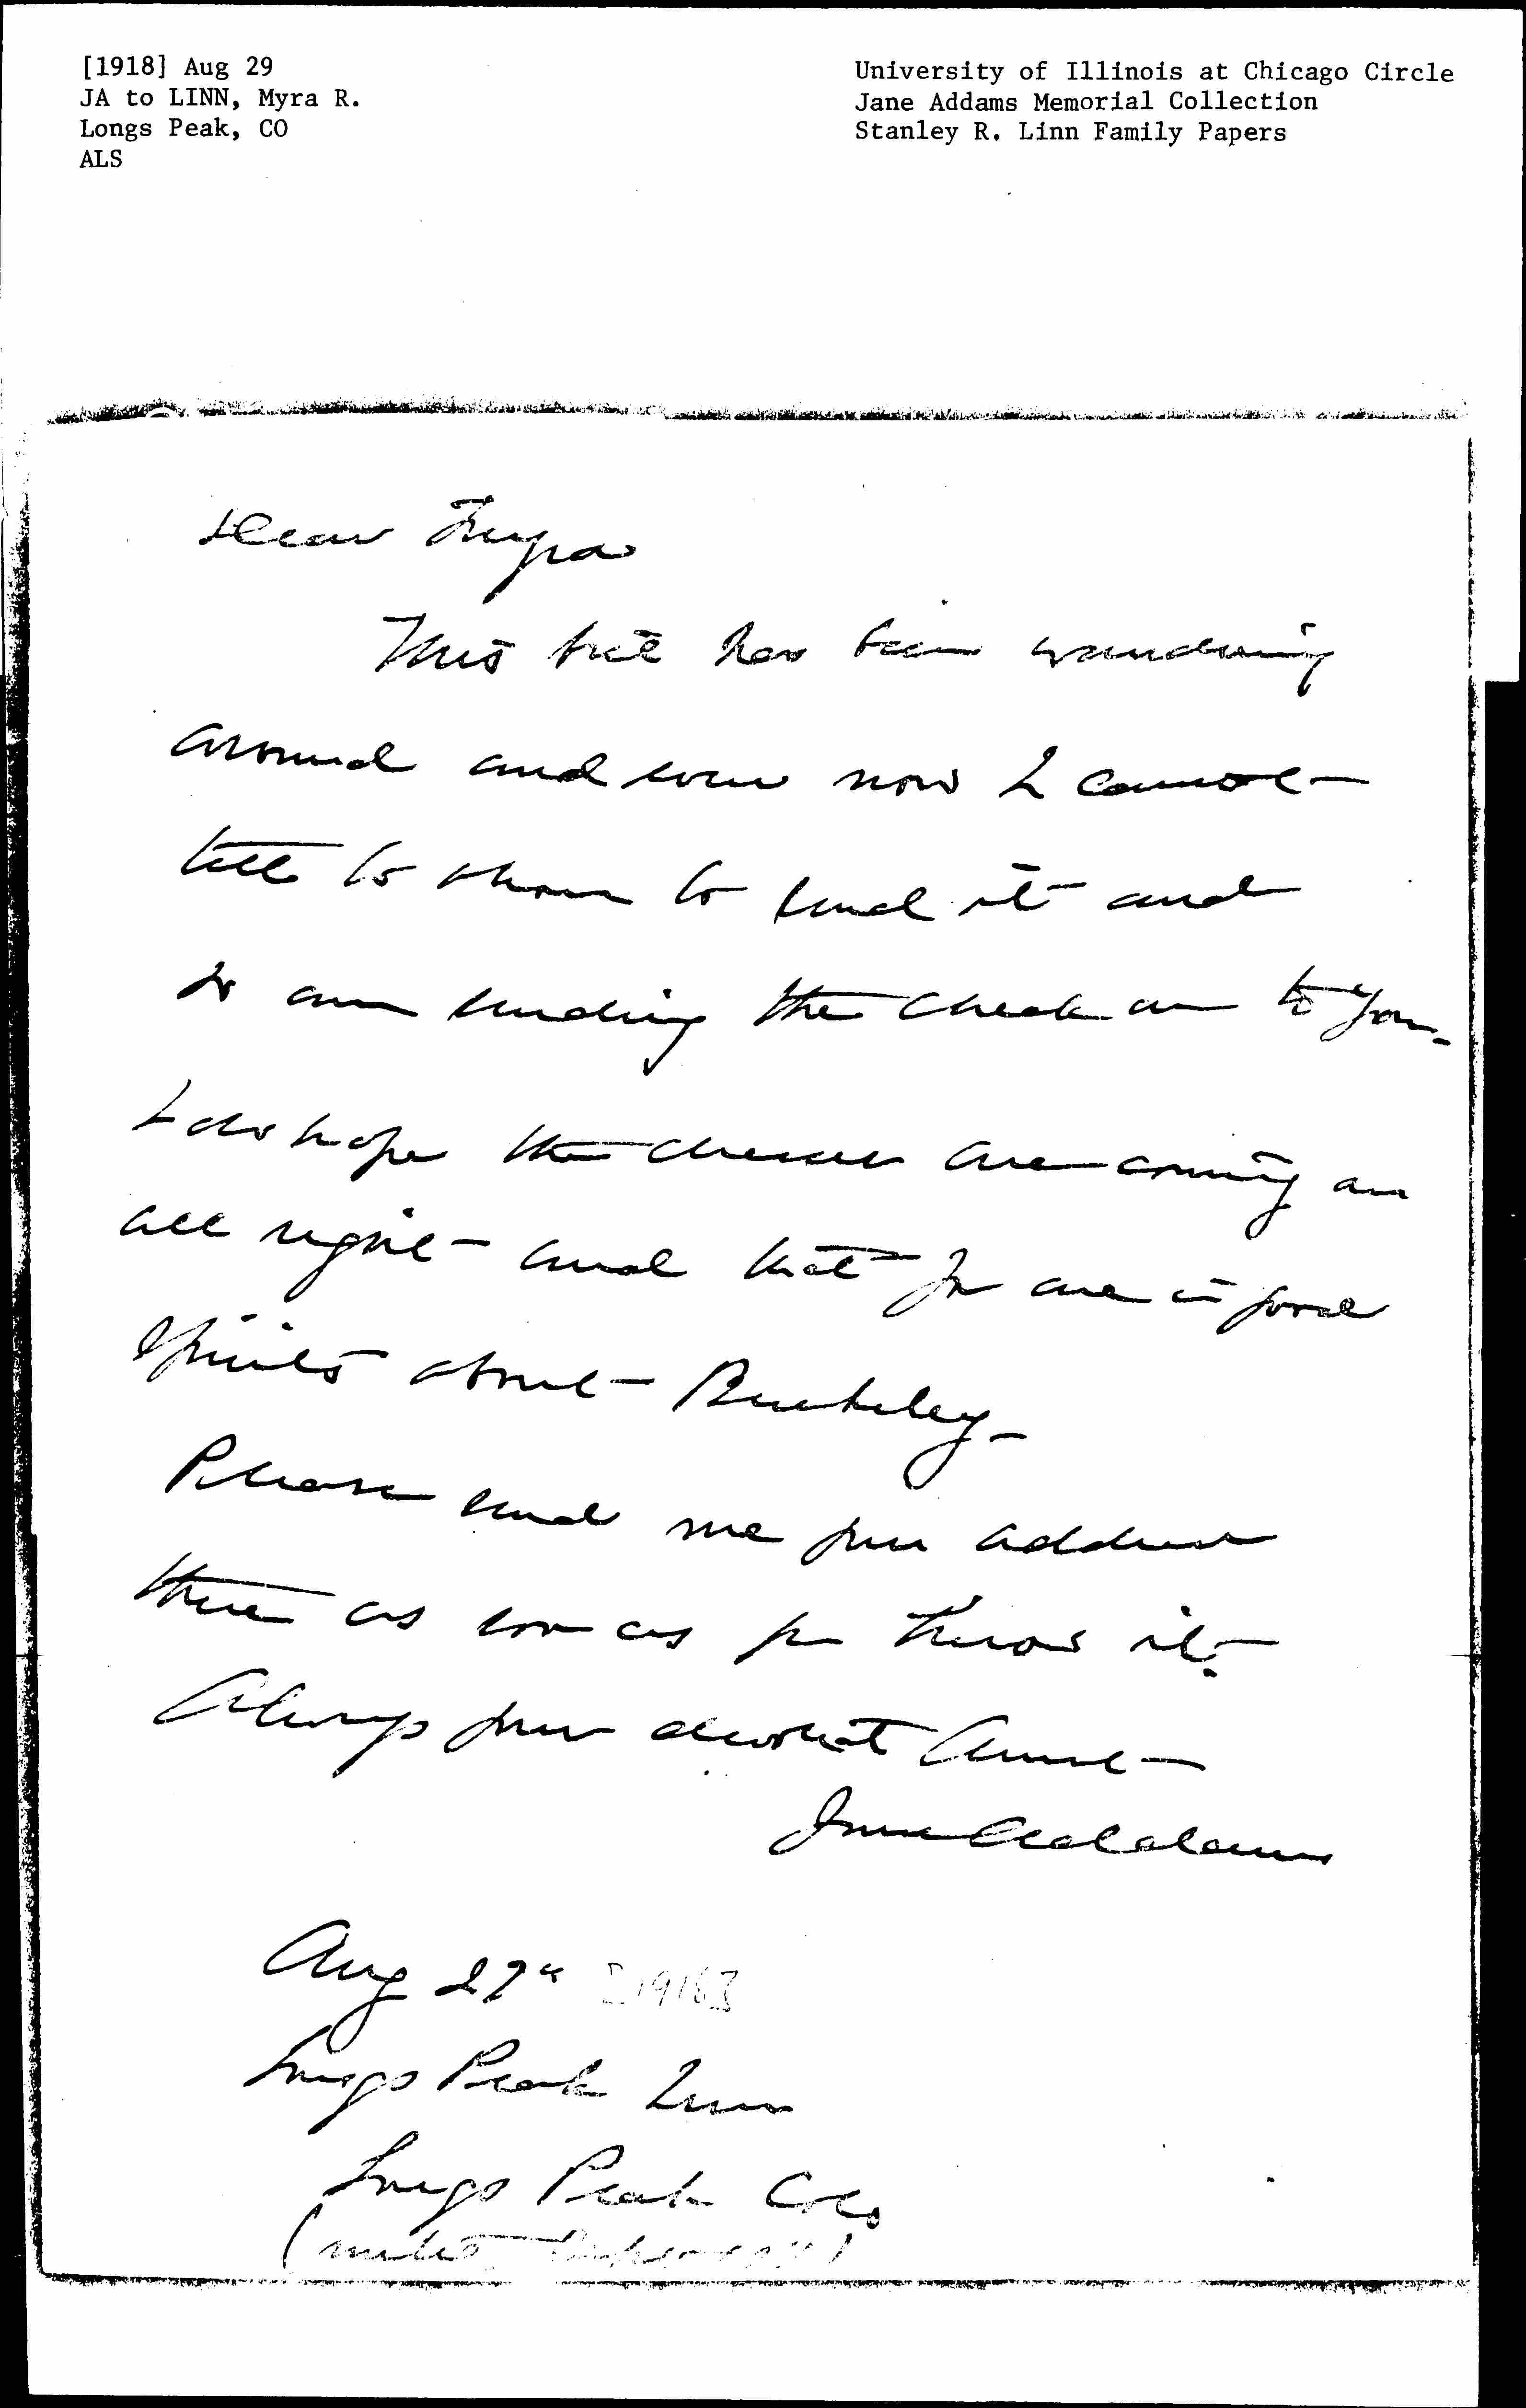 [1918] Aug 29
JA to LINN, Myra R.
Longs Peak, CO
ALS
University of Illinois at Chicago Circle
Jane Addams Memorial Collection
Stanley R. Linn Family Papers
Dear Myra
This bill has been wandering
around and even now I cannot
tell to whom to send it and
so am sending the check on to you.
I do hope the dresses are coming on
all right and that you are in good
spirits about Berkeley
Please send me your address
there as soon as you know it.
Always your devoted Aunt
Jane Addams
Aug 29" [1918]
Longs Peak Inn
Longs Peak Colo
(until